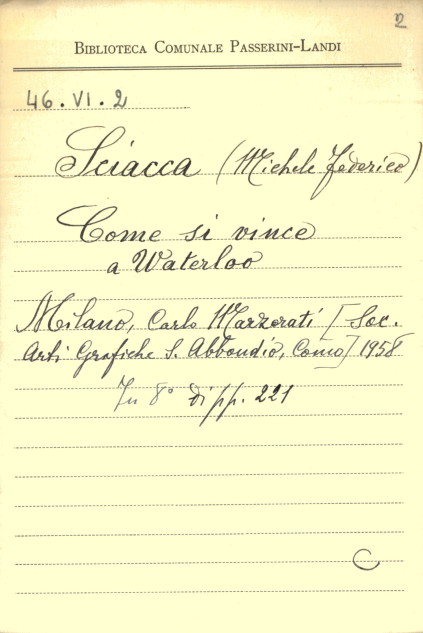 2
BIBLIOTECA COMUNALE PASSERINI-LANDI
46.VI.2
Sciacca (Michele Federico)
Come si vince
a Waterloo
Milano, Carlo Marzorati [Soc.
Arti Grafiche S. Abbondio, Como] 1958
In 8° di pp. 221
C